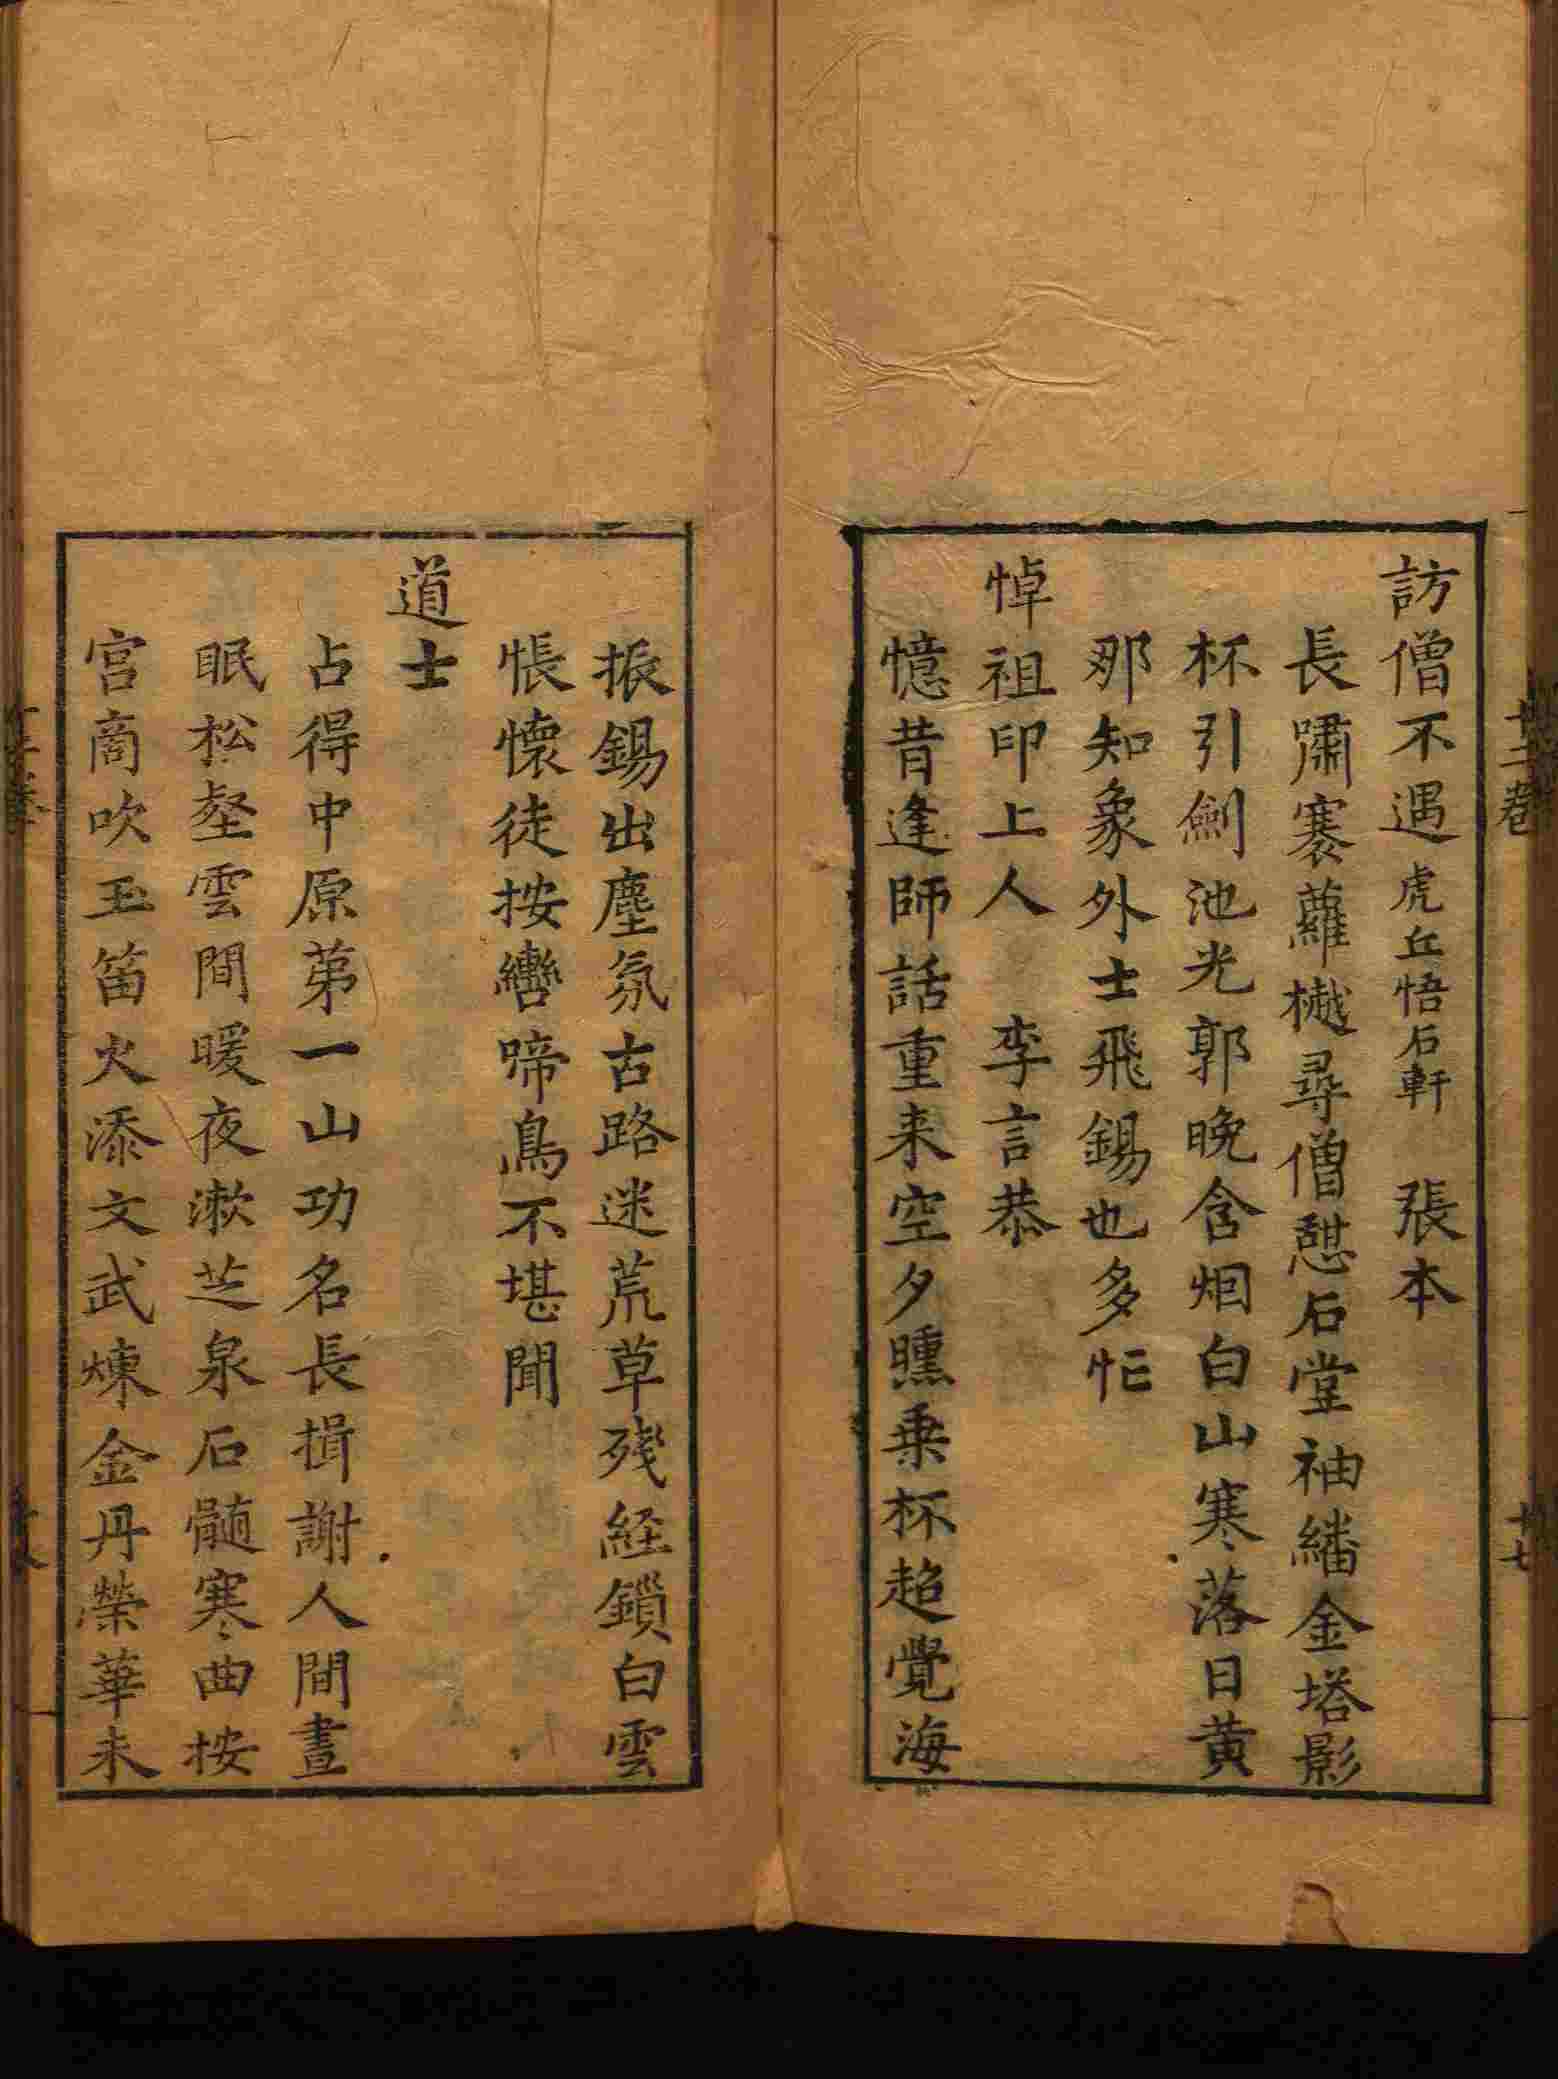 訪僧不遇 虎丘悟石軒 張本
長嘯褰蘿樾尋僧憇石堂袖繙金塔影
杯引劍池光郭晚含烟白山寒落日黄
那知象外士飛錫也多忙
悼祖印上人 李言恭
憶昔逢師話重来空夕曛乗杯超覺海
振錫出塵氛古路迷荒草殘経鎖白雲
悵懷徒按轡啼鳥不堪聞
道士
占得中原苐一山功名長揖謝人間晝
眠松壑雲間暖夜漱芝泉石髓寒曲按
宫商吹玉笛火添文武煉金丹榮華未
十二卷
十七